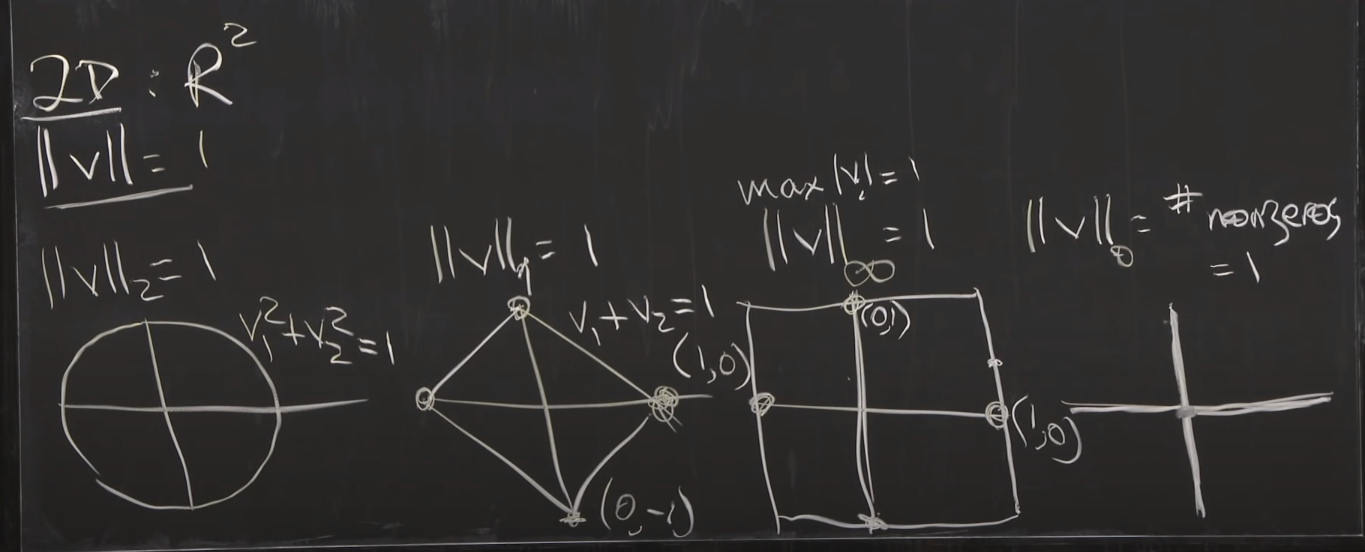 2D : R²
||v|| = 1
||v||₂ = 1
v₁² + v₂² = 1
||v||₁ = 1
v₁ + v₂ = 1
(1,0)
(0,-1)
max |vᵢ| = 1
||v||∞ = 1
(0,1)
(1,0)
||v||₀ = # nonzeros
= 1